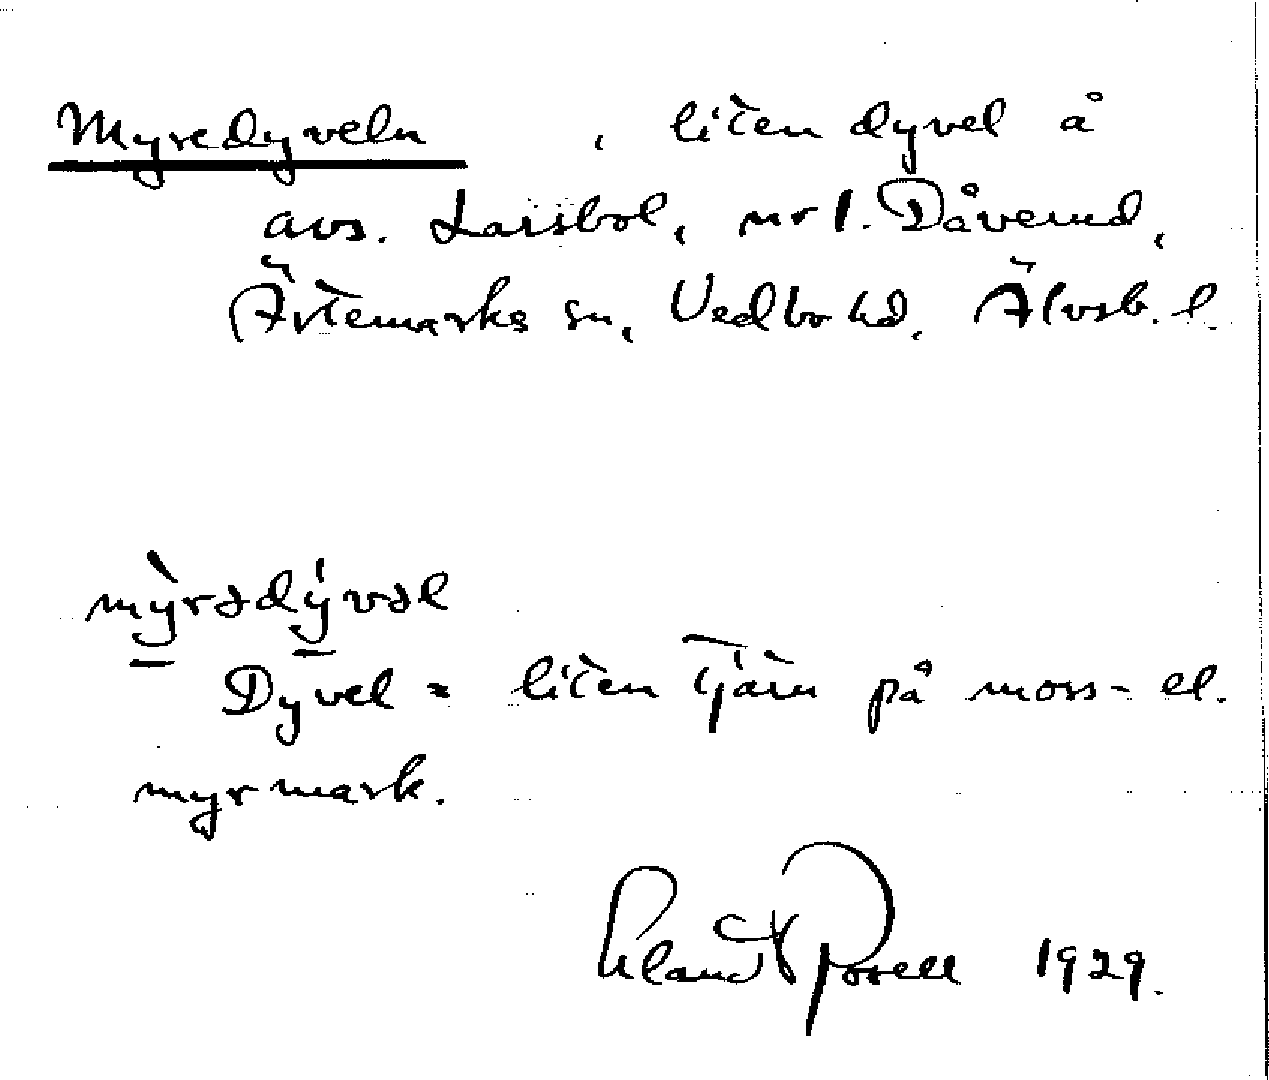 Myredyveln , liten dyvel å
avs. Larsbol, nr 1. Dåverud,
Ärtemarks sn, Vedbo hd. Älvsb. l.
mỳ̱rədý̱vəl
Dyvel = liten tjärn på moss- el.
myrmark.
1929.